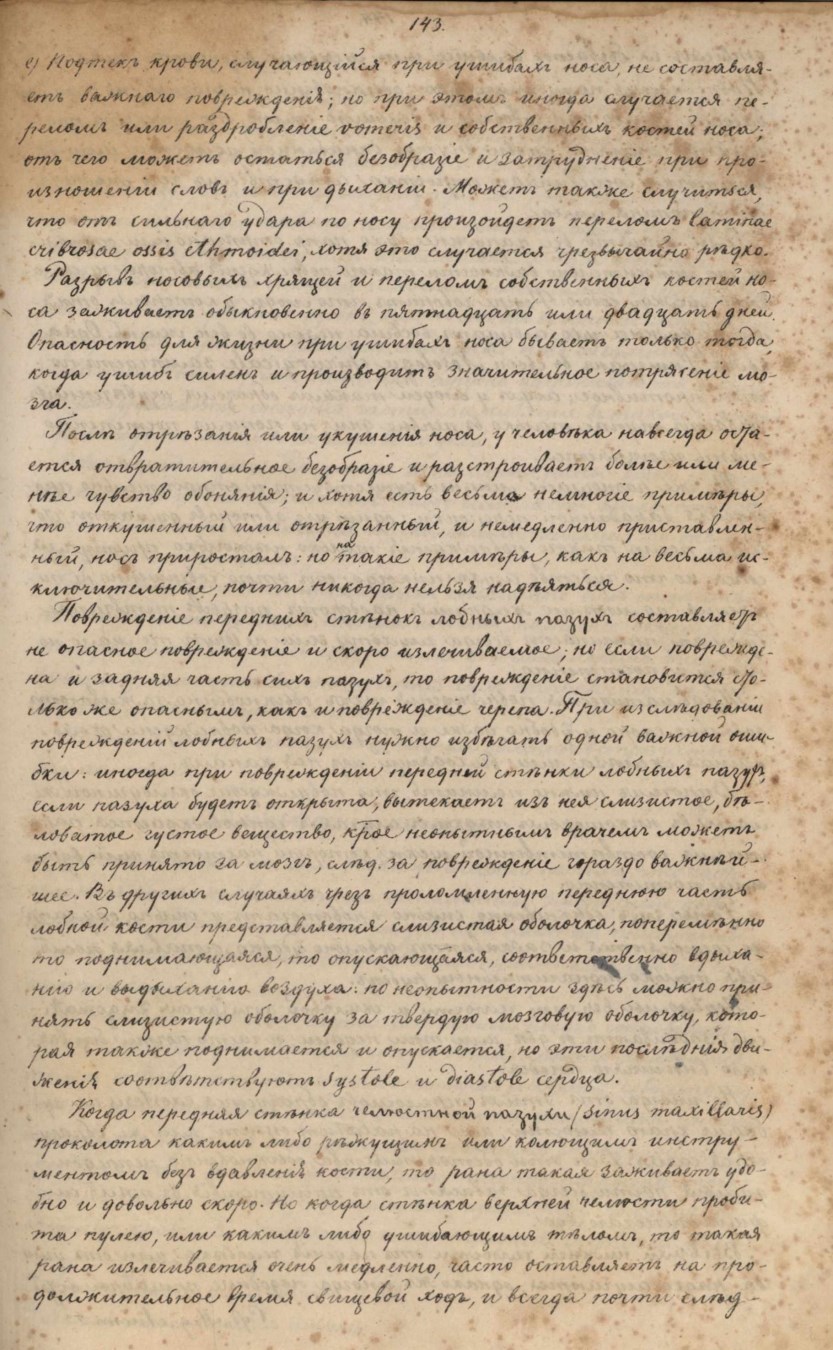 143.
с) Подтекъ крови, случающійся при ушибахъ носа, не составля-
етъ важнаго поврежденія; но при этомъ иногда случается пе-
реломъ или раздробленіе vomeris и собственныхъ костей носа;
отъ чего можетъ остаться безобразіе и затрудненіе при про-
изношеніи словъ и при дыханіи. Можетъ также случиться,
что отъ сильнаго удара по носу произойдетъ переломъ laminae
cribrosae ossis ethmoidei, хотя это случается чрезвычайно рѣдко.
Разрывъ носовыхъ хрящей и переломъ собственныхъ костей но-
са заживаетъ обыкновенно въ пятнадцать или двадцать дней.
Опасность для жизни при ушибахъ носа бываетъ только тогда,
когда ушибъ силенъ и производитъ значительное потрясеніе мо-
зга.
Послѣ отрѣзанія или укушенія носа, у человѣка навсегда оста-
ется отвратительное безобразіе и разстроиваетъ болѣе или ме-
нѣе чувство обонянія; и хотя есть весьма немногіе примѣры,
что откушенный или отрѣзанный, и немедленно приставлен-
ный, носъ приросталъ: но на такіе примѣры, какъ на весьма ис-
ключительные, почти никогда нельзя надѣяться.
Поврежденіе переднихъ стѣнокъ лобныхъ пазухъ составляетъ
не опасное поврежденіе и скоро излечиваемое; но если поврежде-
на и задняя часть сихъ пазухъ, то поврежденіе становится сто-
лько же опаснымъ, какъ и поврежденіе черепа. При изслѣдованіи
поврежденій лобныхъ пазухъ нужно избѣгать одной важной оши-
бки: иногда при поврежденіи передней стѣнки лобныхъ пазухъ,
если пазуха будетъ открыта, вытекаетъ изъ нея слизистое, бѣ-
ловатое густое вещество, крое неопытнымъ врачемъ можетъ
быть принято за мозгъ, слѣд. за поврежденіе гораздо важнѣй-
шее. Въ другихъ случаяхъ чрезъ проломленную переднюю часть
лобной кости представляется слизистая оболочка, поперемѣнно
то поднимающаяся, то опускающаяся, соответственно вдыха-
нію и выдыханію воздуха: по неопытности здѣсь можно при-
нять слизистую оболочку за твердую мозговую оболочку, кото-
рая также поднимается и опускается, но эти послѣднія дви-
женія соотвѣтствуютъ systole и diastole сердца.
Когда передняя стѣнка челюстной пазухи (sinus maxillaris)
проколота какимъ либо рѣжущимъ или колющимъ инстру-
ментомъ безъ вдавленія кости, то рана такая заживаетъ удо-
бно и довольно скоро. Но когда стѣнка верхней челюсти проби-
та пулею, или какимъ либо ушибающимъ тѣломъ, то такая
рана излечивается очень медленно, часто оставляетъ на про-
должительное время свищевой ходъ, и всегда почти слѣд-